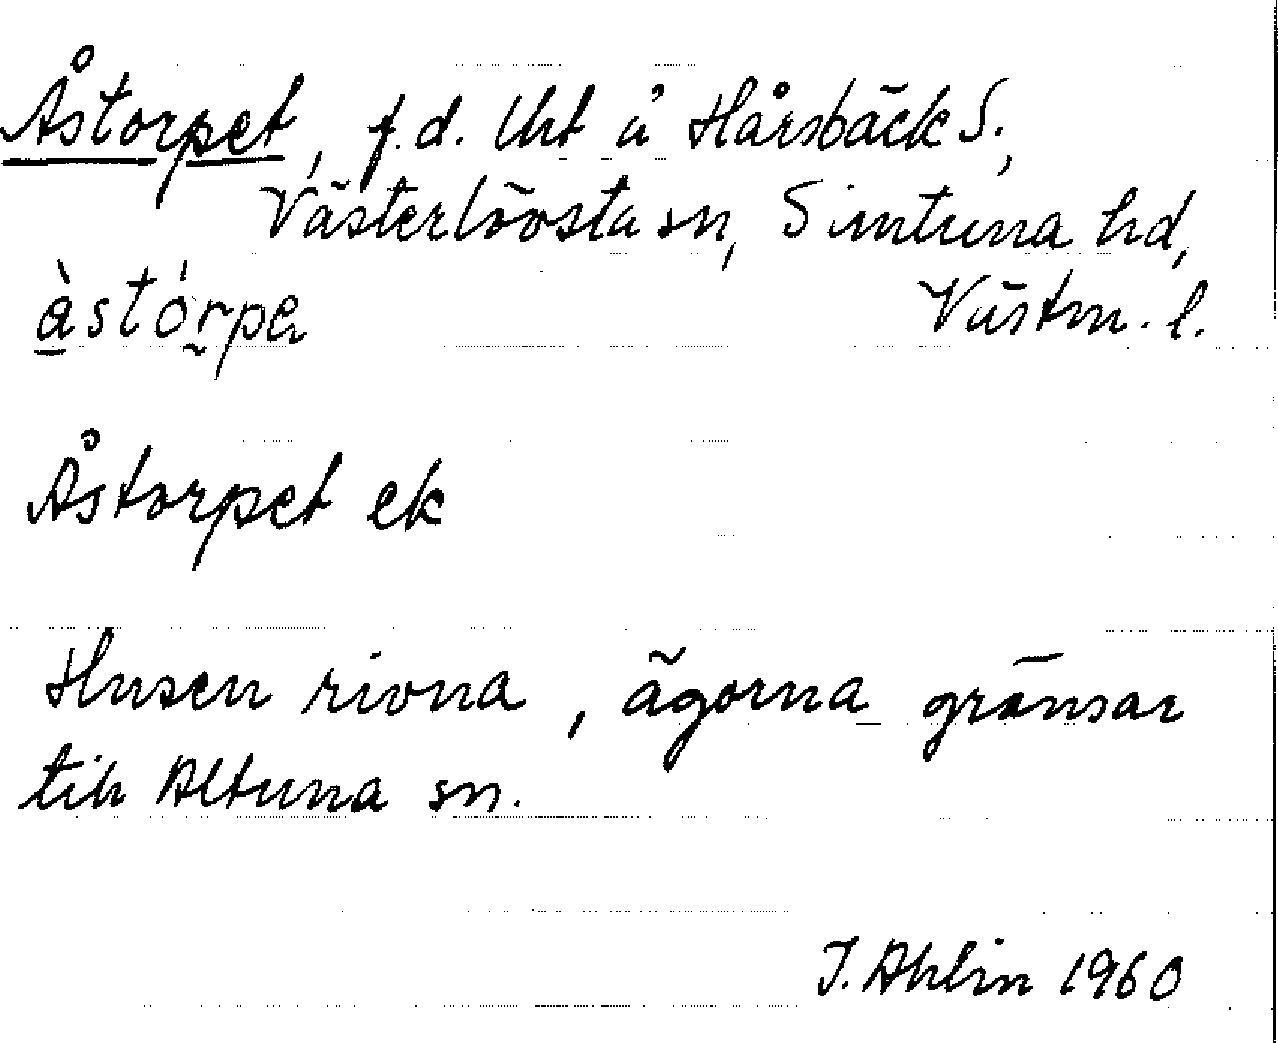 Åstorpet, f.d. lht å Hårsbäck S.,
Västerlövsta sn, Simtuna hd,
àstórpe Västm. l.
Åstorpet ek
Husen rivna, ägorna gränsar
till Altuna sn.
I. Ahlin 1960